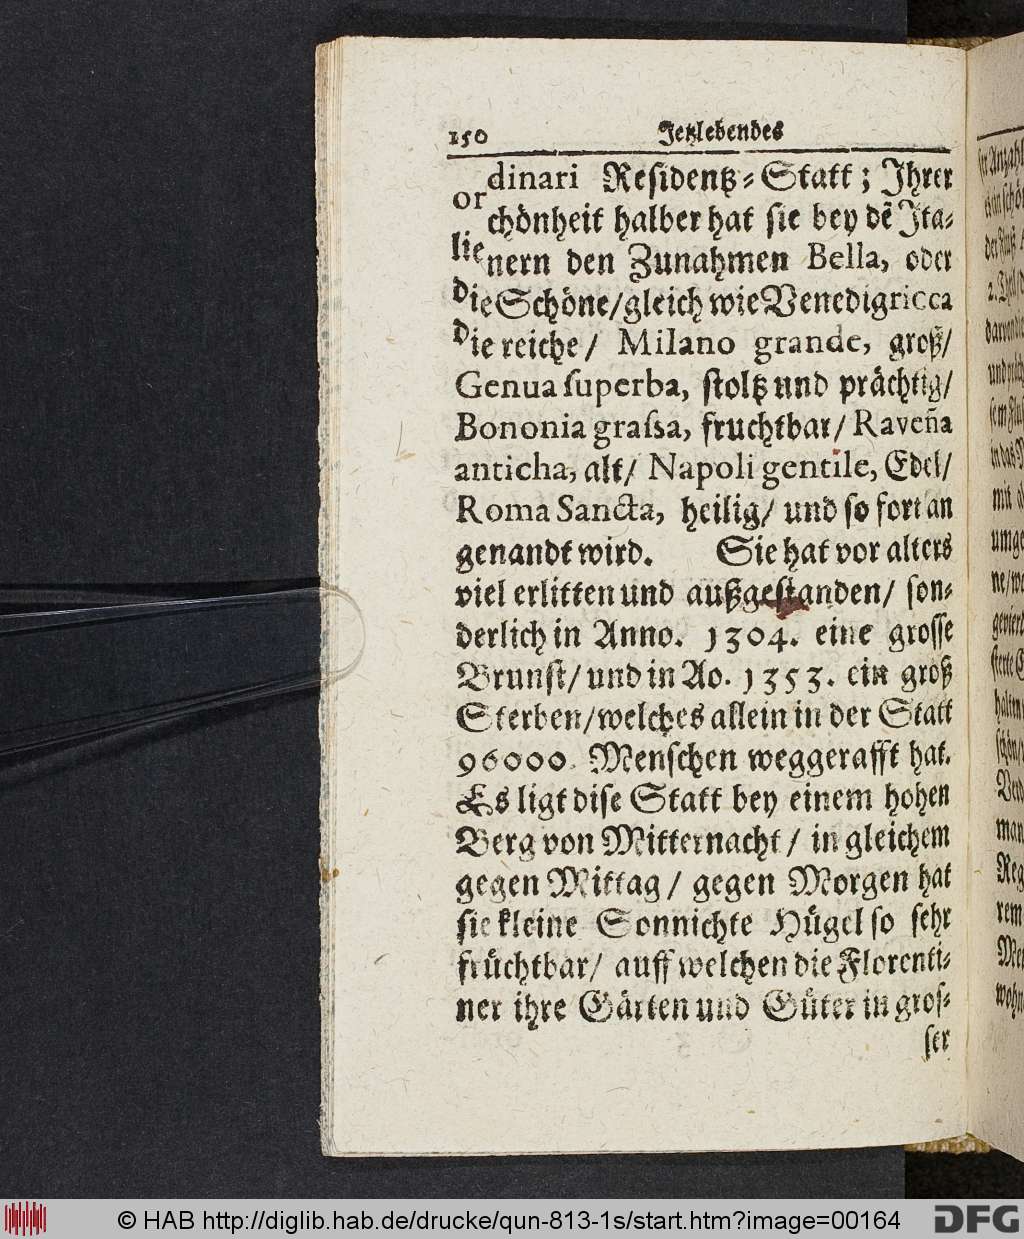 150 Jetzlebendes
ordinari Residentz-Statt; Ihrer
chönheit halber hat sie bey dẽ Ita-
lienern den Zunahmen Bella, oder
die Schöne/gleich wie Venedig ricca
die reiche/ Milano grande, groß/
Genua superba, stoltz und prächtig/
Bononia grassa, fruchtbar/ Raveña
anticha, alt/ Napoli gentile, Edel/
Roma Sancta, heilig/ und so fort an
genandt wird. Sie hat vor alters
viel erlitten und außgestanden/ son-
derlich in Anno. 1304. eine grosse
Brunst/ und in Ao. 1353. ein groß
Sterben/welches allein in der Statt
96000. Menschen weggerafft hat.
Es ligt dise Statt bey einem hohen
Berg von Mitternacht/ in gleichem
gegen Mittag/ gegen Morgen hat
sie kleine Sonnichte Hügel so sehr
früchtbar/ auff welchen die Florenti-
ner ihre Gärten und Güter in gros-
ser
© HAB http://diglib.hab.de/drucke/qun-813-1s/start.htm?image=00164
DFG